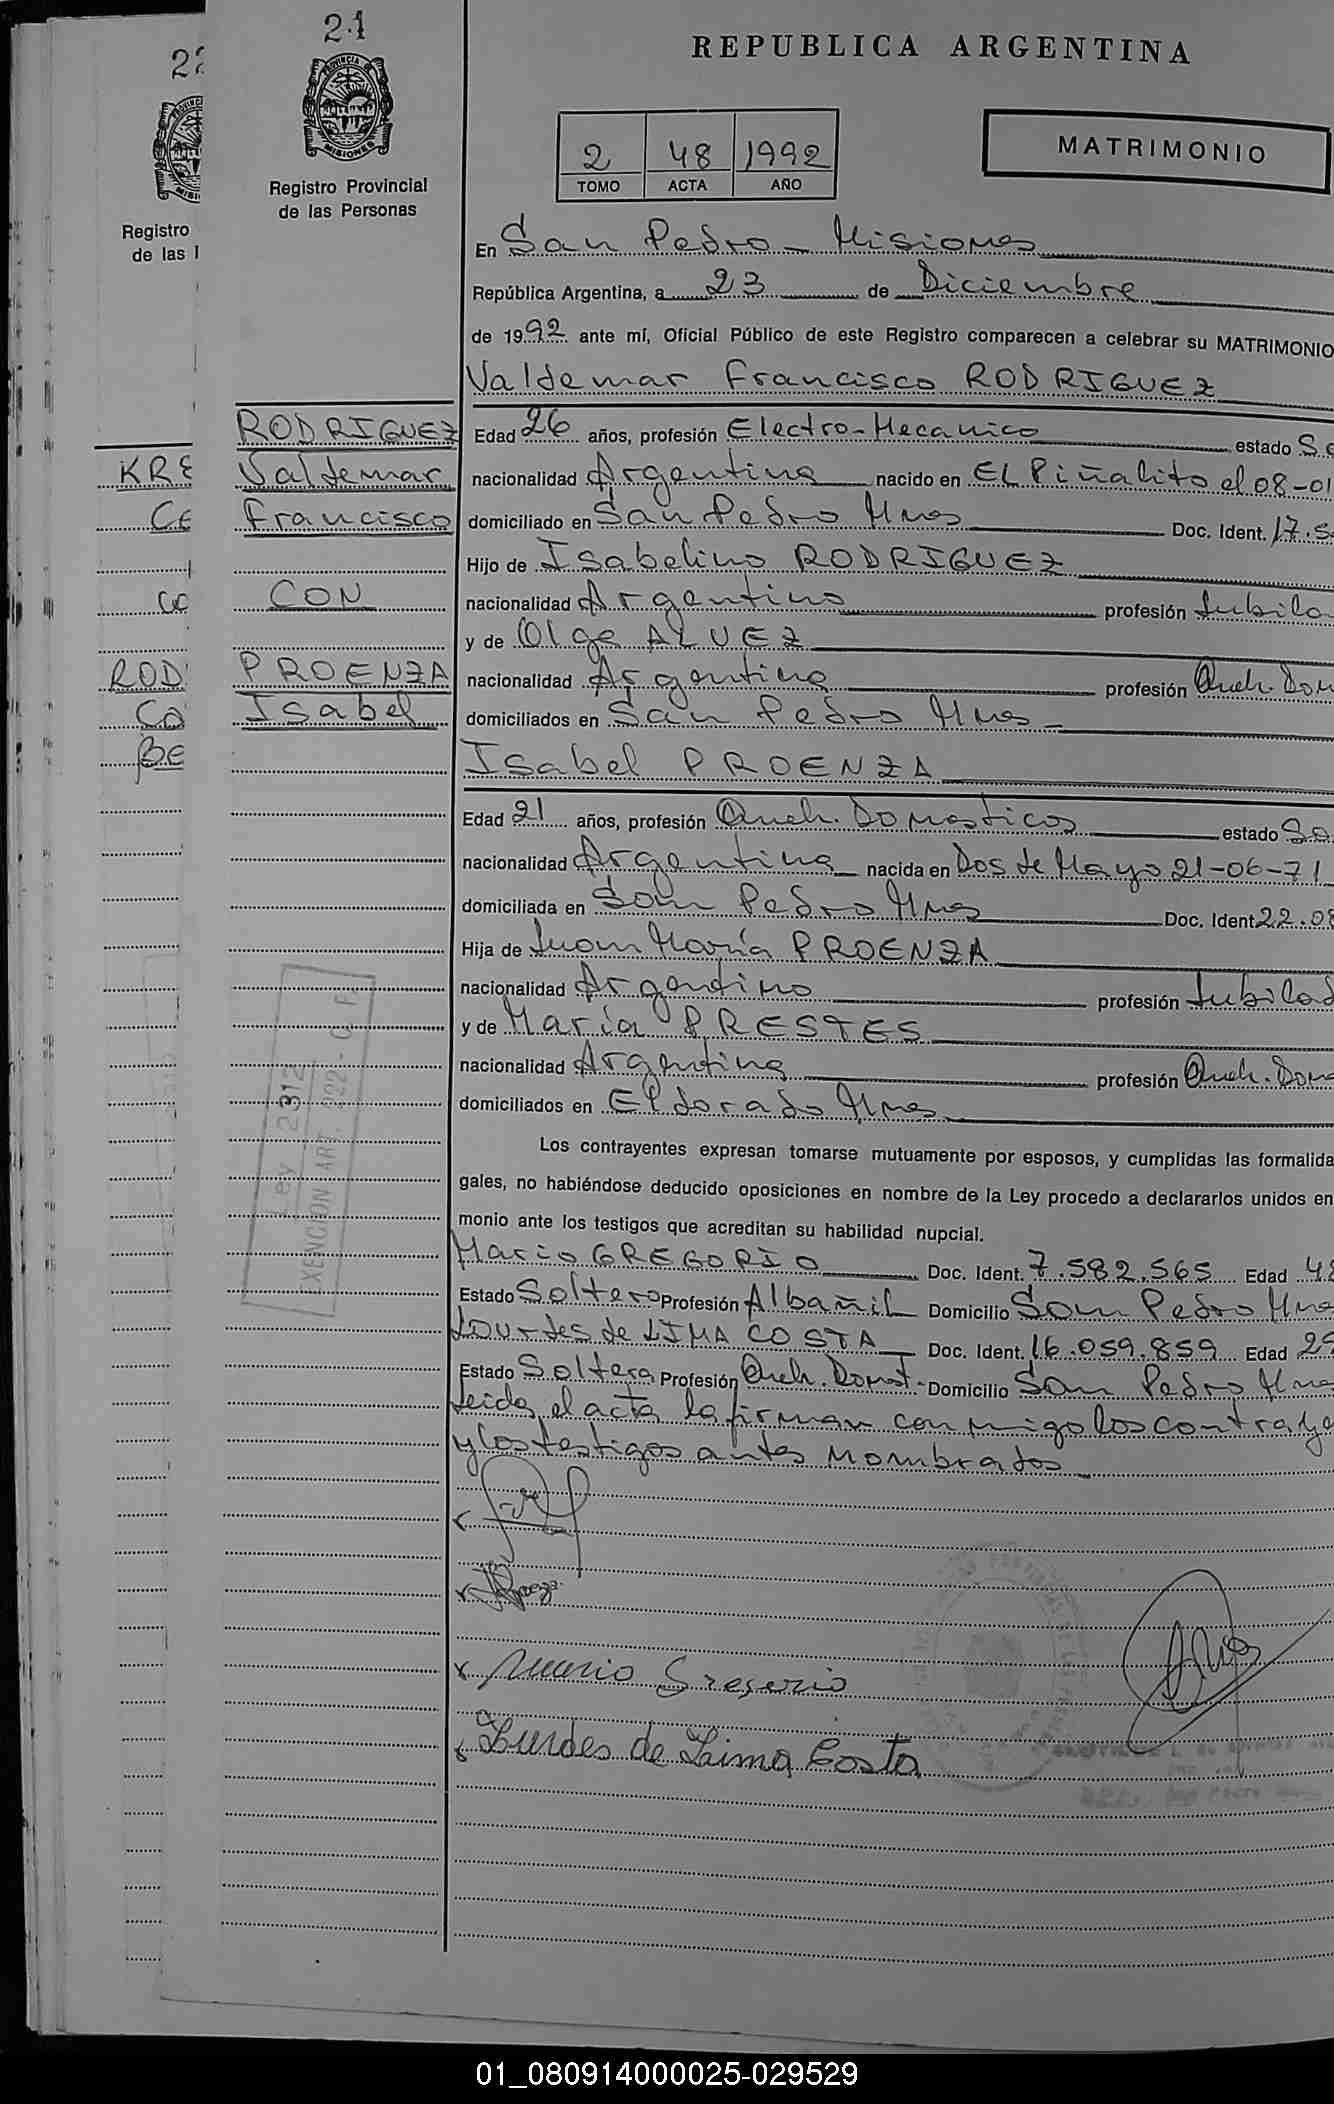 21
REPUBLICA ARGENTINA
PROVINCIA DE
MISIONES
Registro Provincial
de las Personas
2 48 1992
TOMO ACTA AÑO
MATRIMONIO
22
Registro
de las
En San Pedro - Misiones
República Argentina, a 23 de Diciembre
de 1992 ante mí, Oficial Público de este Registro comparecen a celebrar su MATRIMONIO
Valdemar Francisco RODRIGUEZ
RODRIGUEZ
Valdemar
Francisco
CON
PROENZA
Isabel
KRE
CE
CO
ROD
CA
BE
Edad 26 años, profesión Electro-Mecanico estado So
nacionalidad Argentina nacido en EL Piñalito el 08-01
domiciliado en San Pedro Mnes Doc. Ident. 17.5
Hijo de Isabelino RODRIGUEZ
nacionalidad Argentino profesión Jubila
y de Olga ALVEZ
nacionalidad Argentina profesión Queh. Dom
domiciliados en San Pedro Mnes
Isabel PROENZA
Edad 21 años, profesión Queh. Domesticos estado So
nacionalidad Argentina nacida en Dos de Mayo 21-06-71
domiciliada en San Pedro Mnes Doc. Ident 22.08
Hija de Juan María PROENZA
nacionalidad Argentino profesión Jubilad
y de María PRESTES
nacionalidad Argentina profesión Queh. Dome
domiciliados en Eldorado Mnes
Los contrayentes expresan tomarse mutuamente por esposos, y cumplidas las formalida
gales, no habiéndose deducido oposiciones en nombre de la Ley procedo a declararlos unidos en
monio ante los testigos que acreditan su habilidad nupcial.
Mario GREGORIO Doc. Ident. 7.582.565 Edad 48
Estado Soltero Profesión Albañil Domicilio San Pedro Mnes
Lourdes de LIMA COSTA Doc. Ident. 16.059.859 Edad 29
Estado Soltera Profesión Queh. Domest. Domicilio San Pedro Mnes
Leida el acta la firman conmigo los contraye
y los testigos antes nombrados
Ley 2312
EXENCION ART. 322-C.F.
Mario Gregorio
Lurdes de Lima Costa
01_080914000025-029529